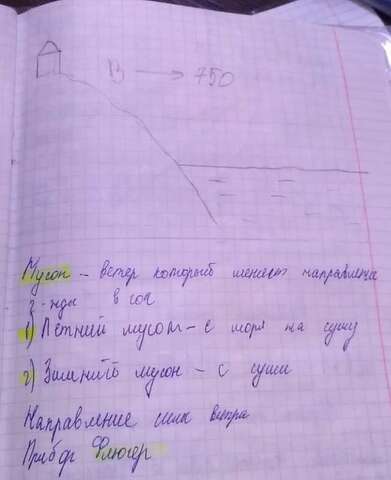 В → 750
Мусон - ветер который меняет направления
2-жды в год
1) Летний мусон - с моря на сушу
2) Зимний мусон - с суши
Направление силы ветра
Прибор Флюгер